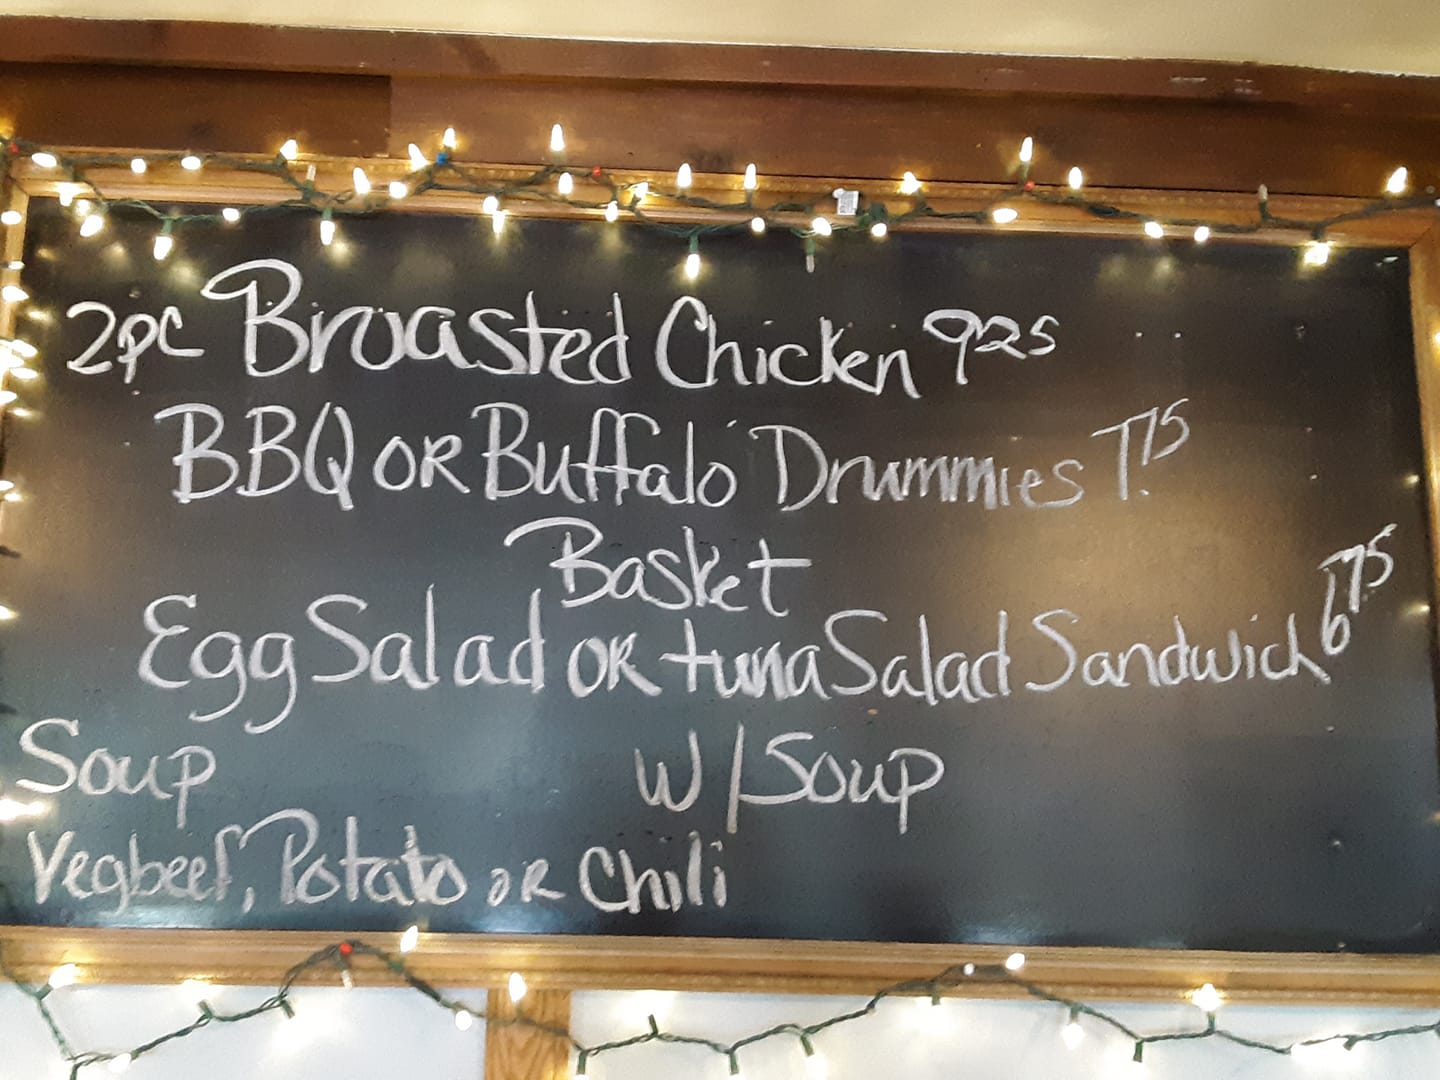 2pc Broasted Chicken 9 25
BBQ OR Buffalo Drummies 7. 75
Basket
Egg Salad OR tuna Salad Sandwich 6 75
Soup W/Soup
Vegbeef, Potato OR Chili